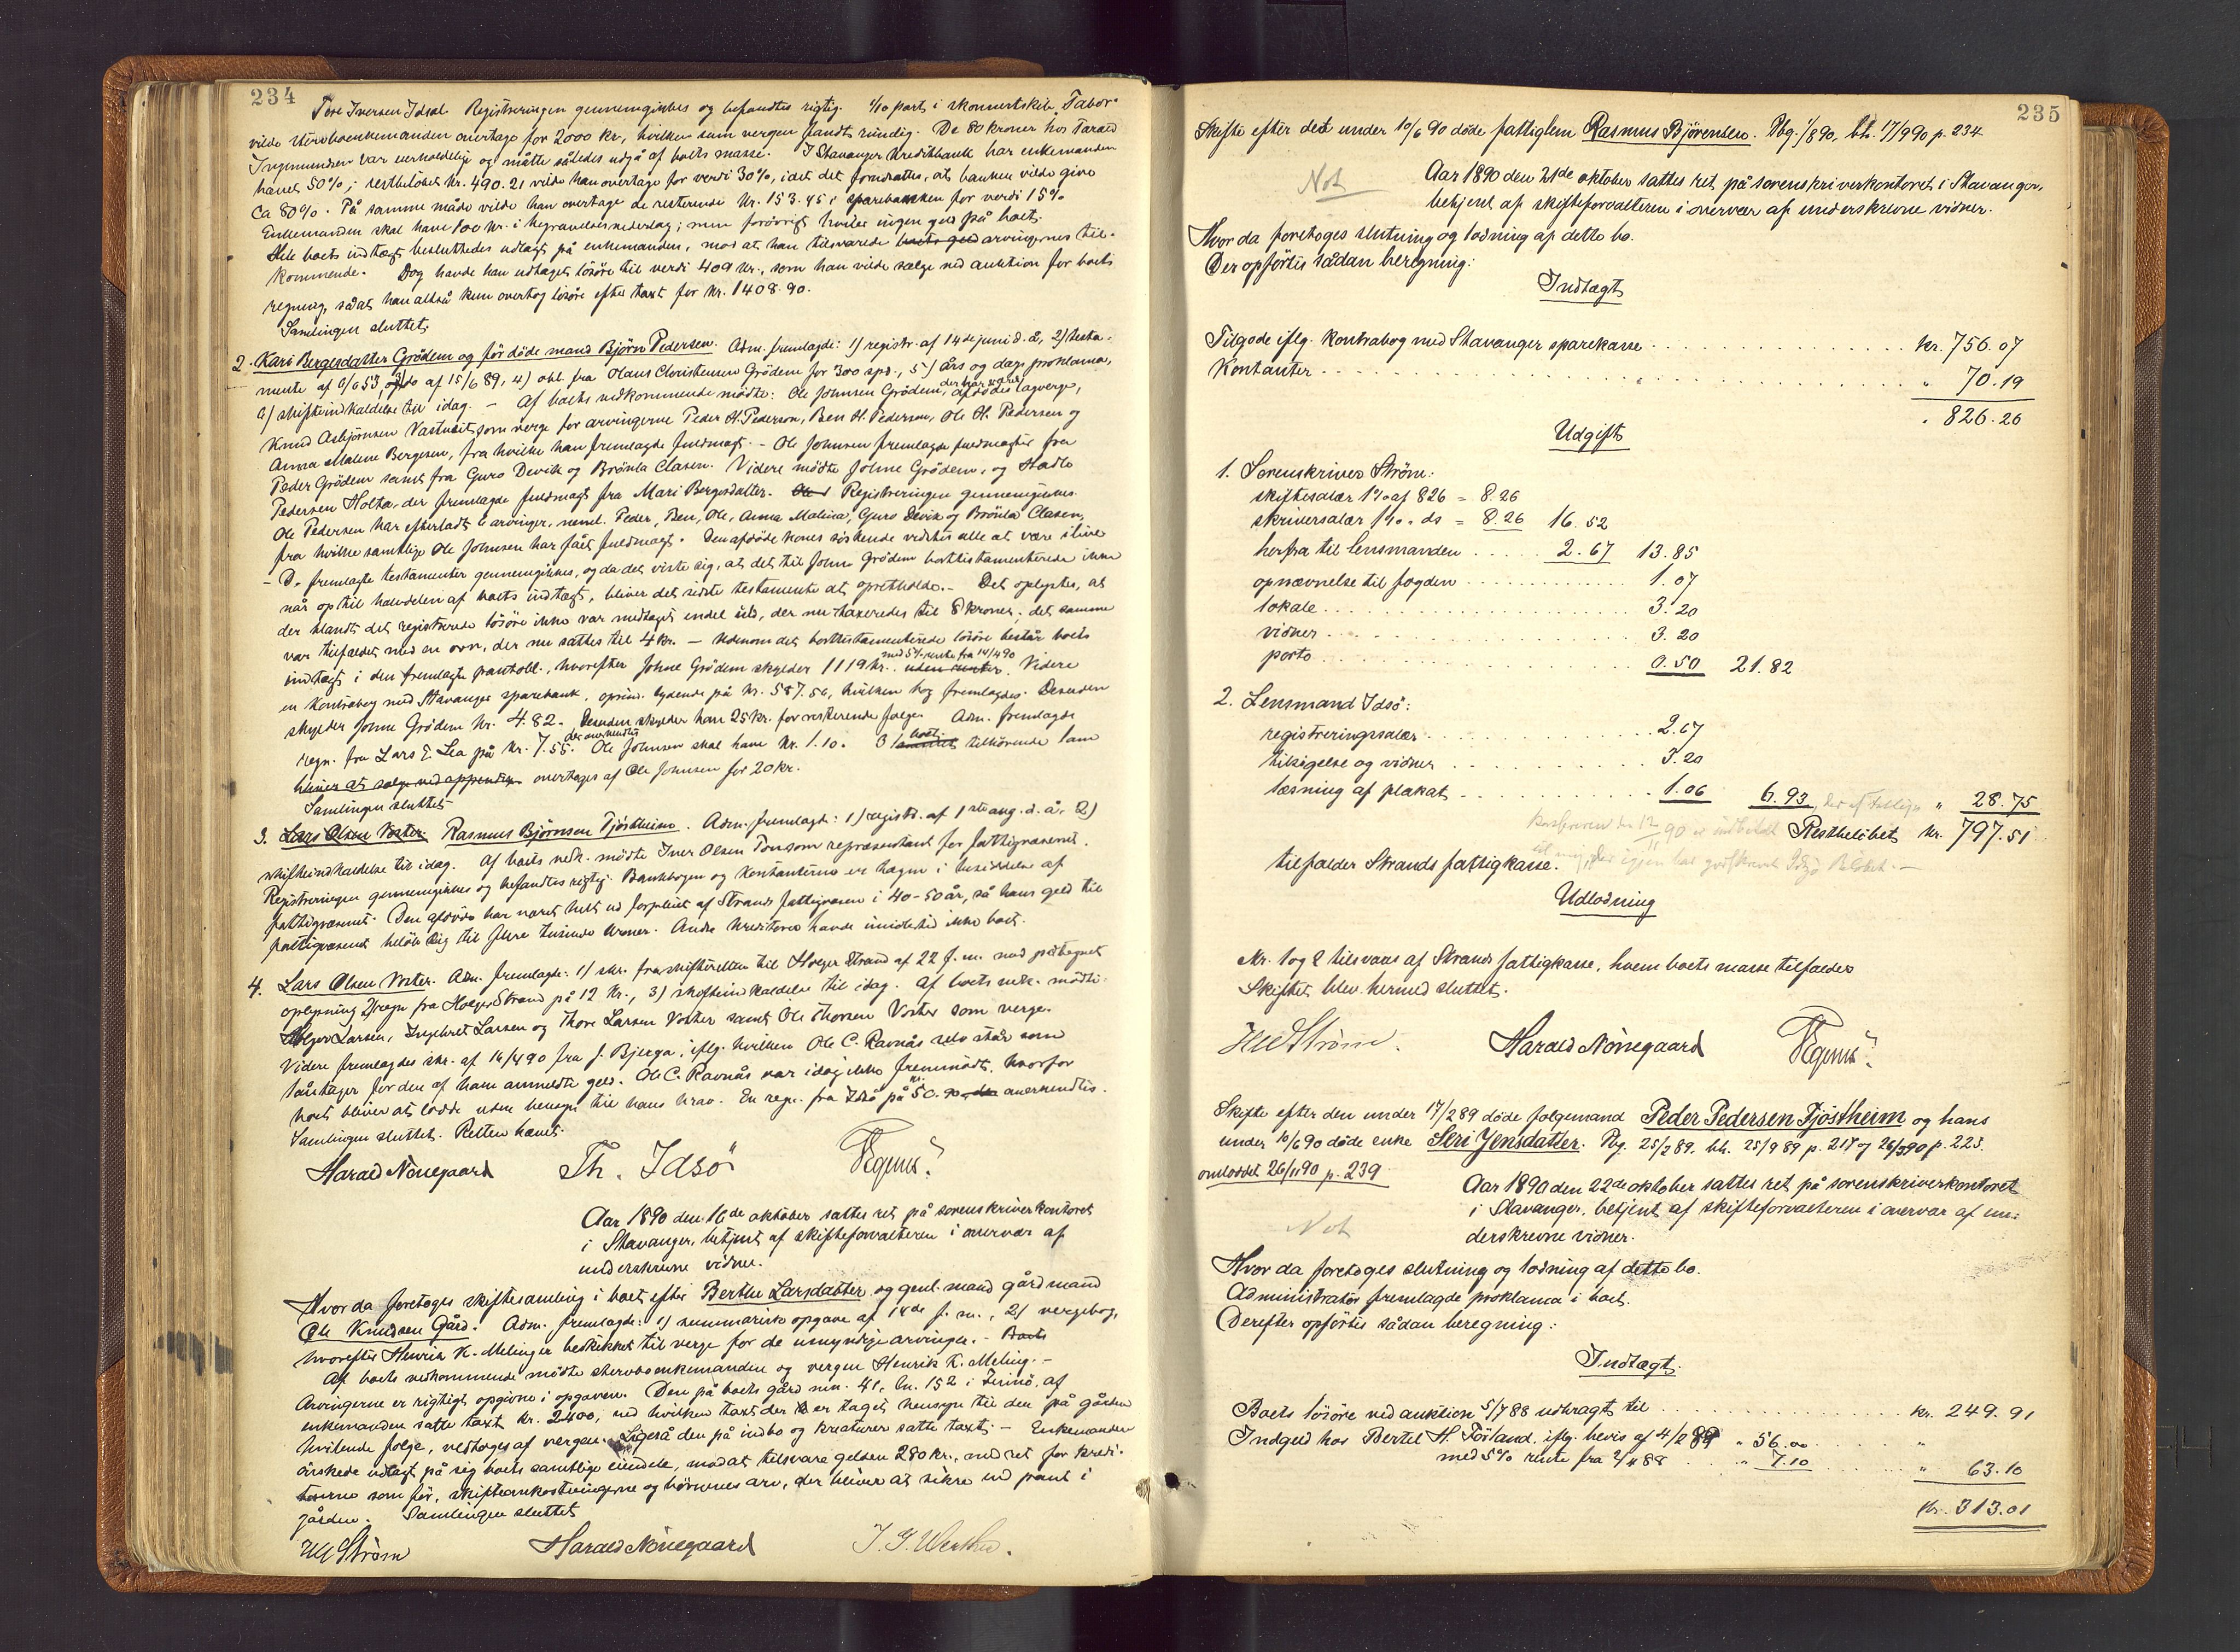 234
Tore Iversen Idsal Registreringen gennemgikkes og befandtes rigtig. 1/10 part i skonnertskib "Tabor"
vilde stervboenkemanden overtage for 2000 kr, hvilken sum vergen fandt rundig. De 80 kroner hos Tarald
Ingemundsen var uerholdelige og måtte således udgå af boets masse. I Stavanger Kreditbank har enkemanden
hævet 50%; restbeløbet kr. 490.21 vilde han overtage for verdi 30%, idet det forudsattes, at banken vilde give
ca 80%. På samme måde vilde han overtage de resterende kr. 153.45 i sparebanken for verdi 15%
Enkemanden skal have 800 kr. i begravelsesvederlag; men forøvrigt hviler ingen geld på boet.
Hele boets indtægt besluttedes udlagt på enkemanden, mod at han tilsvarede boets geld arvingernes til-
kommende. Dog havde han udtaget løsøre til verdi 409 kr., som han vilde sælge ved auktion for boets
regning, sådat han altså kun overtog løsøre efter taxt for kr. 1408.90.
Samlingen sluttet.
2. Kari Bergesdatter Grødem og før døde mand Bjørn Pedersen. Adm. fremlagde: 1) registr. af 14de juni d. å, 2) testa-
mente af 6/6 53, 3) do af 15/6 89, 4) obl. fra Olaus Christensen Grødem for 300 spd., 5) års og dags proklama,
6) skifteindkaldelse til idag. - Af boets vedkommende mødte: Ole Johnsen Grødem, der har været afdødes lagverge,
Knud Asbjørnsen Vastveit som verge for arvingerne Peder H. Pederson, Ben H. Pederson, Ole H. Pedersen og
Anna Malene Bergesen, fra hvilke han fremlagde fuldmagt. - Ole Johnsen fremlagde fuldmagter fra
Peder Grødem samt fra Guro Devik og Brønla Clasen. Videre mødte Johne Grødem, og Stadle
Pedersen Holta, der fremlagde fuldmagt fra Mari Bergesdatter. Ole Registreringen gennemgikkes.
Ole Pedersen har efterladt 6 arvinger, neml. Peder, Ben, Ole, Anna Malena, Guro Devik og Brønla Clasen,
fra hvilke samtlige Ole Johnsen har fået fuldmagt. Den afdøde kones søskende vidstes alle at være ilive
- D. fremlagte testamenter gennemgikkes, og da det viste sig, at det til Johne Grødem borttestamenterede ikke
når op til halvdelen af boets indtægt, bliver det sidste testamente at opretholde. - Det oplystes, at
der blandt det registrerede løsøre ikke var medtaget endel uld, der nu taxeredes til 8 kroner; det samme
var tilfældet med en ovn, der nu sattes til 4 kr. - Udenom det borttestamenterede løsøre består boets
indtægt i den fremlagte pantobl., hvorefter Johne Grødem skylder 1119 kr. uden renter med 5% rente fra 14/4 90. Videre
en kontrabog med Stavanger sparebank, oprind. lydende på kr. 587.56, hvilken bog fremlagdes. Desuden
skylder Johne Grødem kr. 4.82. Desuden skylder han 25 kr. for resterende folge. Adm. fremlagde
regn. fra Lars E. Lea på kr. 7.55. der anerkendtes Ole Johnsen skal have kr. 1.10. 3 boet tilhørende lam
bliver at sælge ved appendix overtages af Ole Johnsen for 20 kr.
Samlingen sluttet
3. Lars Olsen Voster. Rasmus Bjørnsen Tjøstheim. Adm. fremlagde: 1) registr. af 1ste aug. d. å, 2)
skifteindkaldelse til idag. Af boets vedk. mødte Iver Olsen Tou som repræsentant for fattigvæsenet.
Registreringen gennemgikkes og befandtes rigtig. Bankbogen og kontanterne er begge i besiddelse af
fattigvæsenet. Den afdøde har været helt ud forpleiet af Strands fattigvæsen i 40-50 år, så hans geld til
fattigvæsenet beløb sig til flere tusinde kroner. Andre kreditorer havde imidlertid ikke boet.
4. Lars Olsen Voster. Adm. fremlagde: 1) skr. fra skifteretten til Holger Strand af 22 f. m. med påtegnet
oplysning, 2) regn. fra Holger Strand på 12 kr., 3) skifteindkaldelse til idag. Af boets vedk. mødte
Holger Larsen, Ingebret Larsen og Thore Larsen Voster samt Ole Thorsen Voster som verge.
Videre fremlagdes skr. af 16/4 90 fra J. Bjerga, iflg. hvilken Ole C. Ravnås selv står som
låntager for den af ham anmeldte geld. Ole C. Ravnås var idag ikke fremmødt, hvorfor
boet bliver at lodde uden hensyn til hans krav. En regn. fra Idsø på kr. 50.90 anerkendtes.
Samlingen sluttet. Retten hævet.
Harald Nørregaard Th. Idsø
Aar 1890 den 16de oktober sattes ret på sorenskriverkontoret
i Stavanger, betjent af skifteforvalteren i overvær af
underskrevne vidner.
Hvor da foretoges skiftesamling i boet efter Berthe Larsdatter og genl. mand gårdmand
Ole Knudsen Gård. Adm. fremlagde: 1) summarisk opgave af 14de f. m., 2) vergebog,
hvorefter Henrik K. Melinger beskikket til verge for de umyndige arvinger. - Boets
Af boets vedkommende mødte stervboenkemanden og vergen Henrik K. Meling. -
Arvingerne er rigtigt opgivne i opgaven. Den på boets gård mn. 41, bn. 152 i Finnø, af
enkemanden satte taxt kr. 2400, ved hvilken taxt der er taget hensyn til den på gården
hvilende folge, vedtoges af vergen. Ligeså den på indbo og kreaturer satte taxt. - Enkemanden
ønskede udlagt på sig boets samtlige eiendele, mod at tilsvare gelden 280 kr., med ret for kredi-
torerne som før, skifteomkostningerne og børnenes arv, der bliver at sikre ved pant i
gården. Samlingen sluttet
Strøm Harald Nørregaard
235
Skifte efter det under 10/6 90 døde fattiglem Rasmus Bjørensen. Pbg. 1/8 90, bh. 17/9 90 p. 234
Not
Aar 1890 den 21de oktober sattes ret på sorenskriverkontoret i Stavanger,
betjent af skifteforvalteren i overvær af underskrevne vidner.
Hvor da foretoges slutning og lodning af dette bo.
Der opførtes sådan beregning:
Indtægt
Tilgode iflg. kontrabog med Stavanger sparekasse . . . kr. 756.07
Kontanter . . . " 70.19
" 826.26
Udgift
1. Sorenskriver Strøm:
skiftesalær 1% af 826 = 8.26
skriversalær 1% " do = 8.26 16.52
herfra til lensmanden . . . 2.67 13.85
opnævnelse til fogden . . . 1.07
lokale . . . 3.20
vidner . . . 3.20
porto . . . 0.50 21.82
2. Lensmand Idsø:
registreringssalær . . . 2.67
tilsigelse og vidner . . . 3.20
læsning af plakat . . . 1.06 6.93 " 28.75
Restbeløbet kr. 797.51
tilfalder Strands fattigkasse.
Udlodning
Nr. 1 og 2 tilsvares af Strands fattigkasse, hvem boets masse tilfalder
Skiftet blev hermed sluttet.
Strøm. Harald Nørregaard
Skifte efter den under 17/2 89 døde folgemand Peder Pedersen Tjøstheim og hans
under 10/6 90 døde enke Seri Jensdatter. Pbg. 25/2 89. bh. 25/9 89 p. 217 og 26/9 90 p. 223.
omloddet 26/11 90 p. 239
Not
Aar 1890 den 22de oktober sattes ret på sorenskriverkontoret
i Stavanger, betjent af skifteforvalteren i overvær af un-
derskrevne vidner.
Hvor da foretoges slutning og lodning af dette bo.
Administrator fremlagde proklama i boet.
Derefter opførtes sådan beregning:
Indtægt.
Boets løsøre ved auktion 5/7 88 udbragt til . . . kr. 249.91
Indgeld hos Bertel H. Førland iflg. bevis af 4/2 89 " 56.00
med 5% rente fra 2/4 88 . . " 7.10 " 63.10
Kr. 313.01